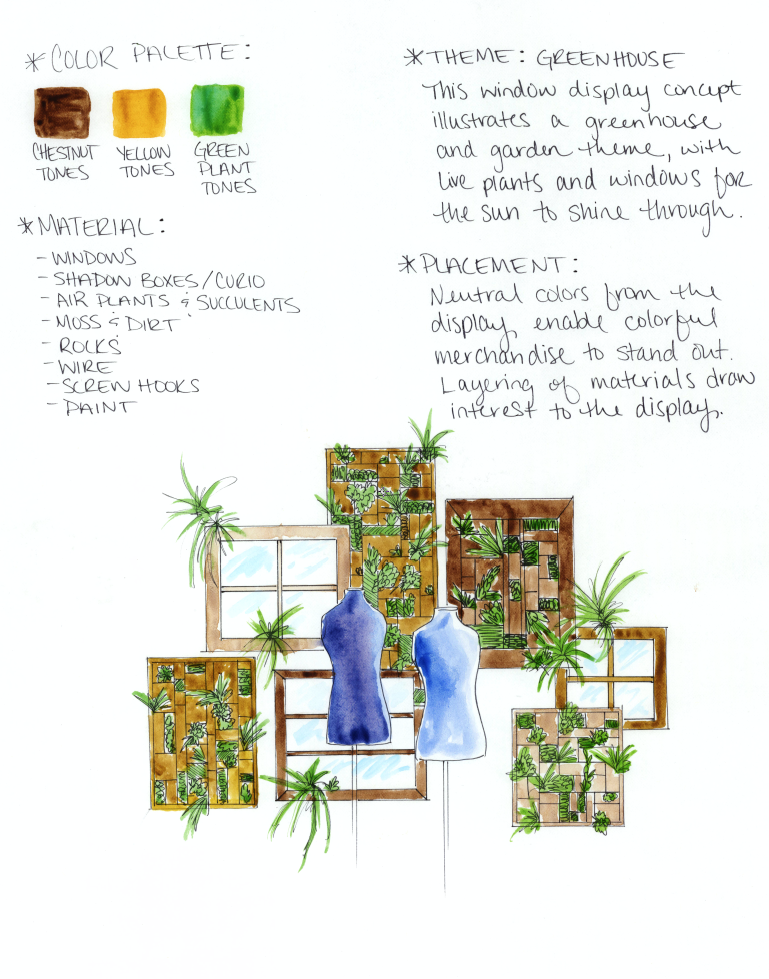 *COLOR PALETTE:
CHESTNUT TONES
YELLOW TONES
GREEN PLANT TONES
*MATERIAL:
- WINDOWS
- SHADOW BOXES/CURIO
- AIR PLANTS & SUCCULENTS
- MOSS & DIRT
- ROCKS
- WIRE
- SCREW HOOKS
- PAINT
*THEME: GREENHOUSE
This window display concept
illustrates a greenhouse
and garden theme, with
live plants and windows for
the sun to shine through.
*PLACEMENT:
Neutral colors from the
display, enable colorful
merchandise to stand out.
Layering of materials draw
interest to the display.